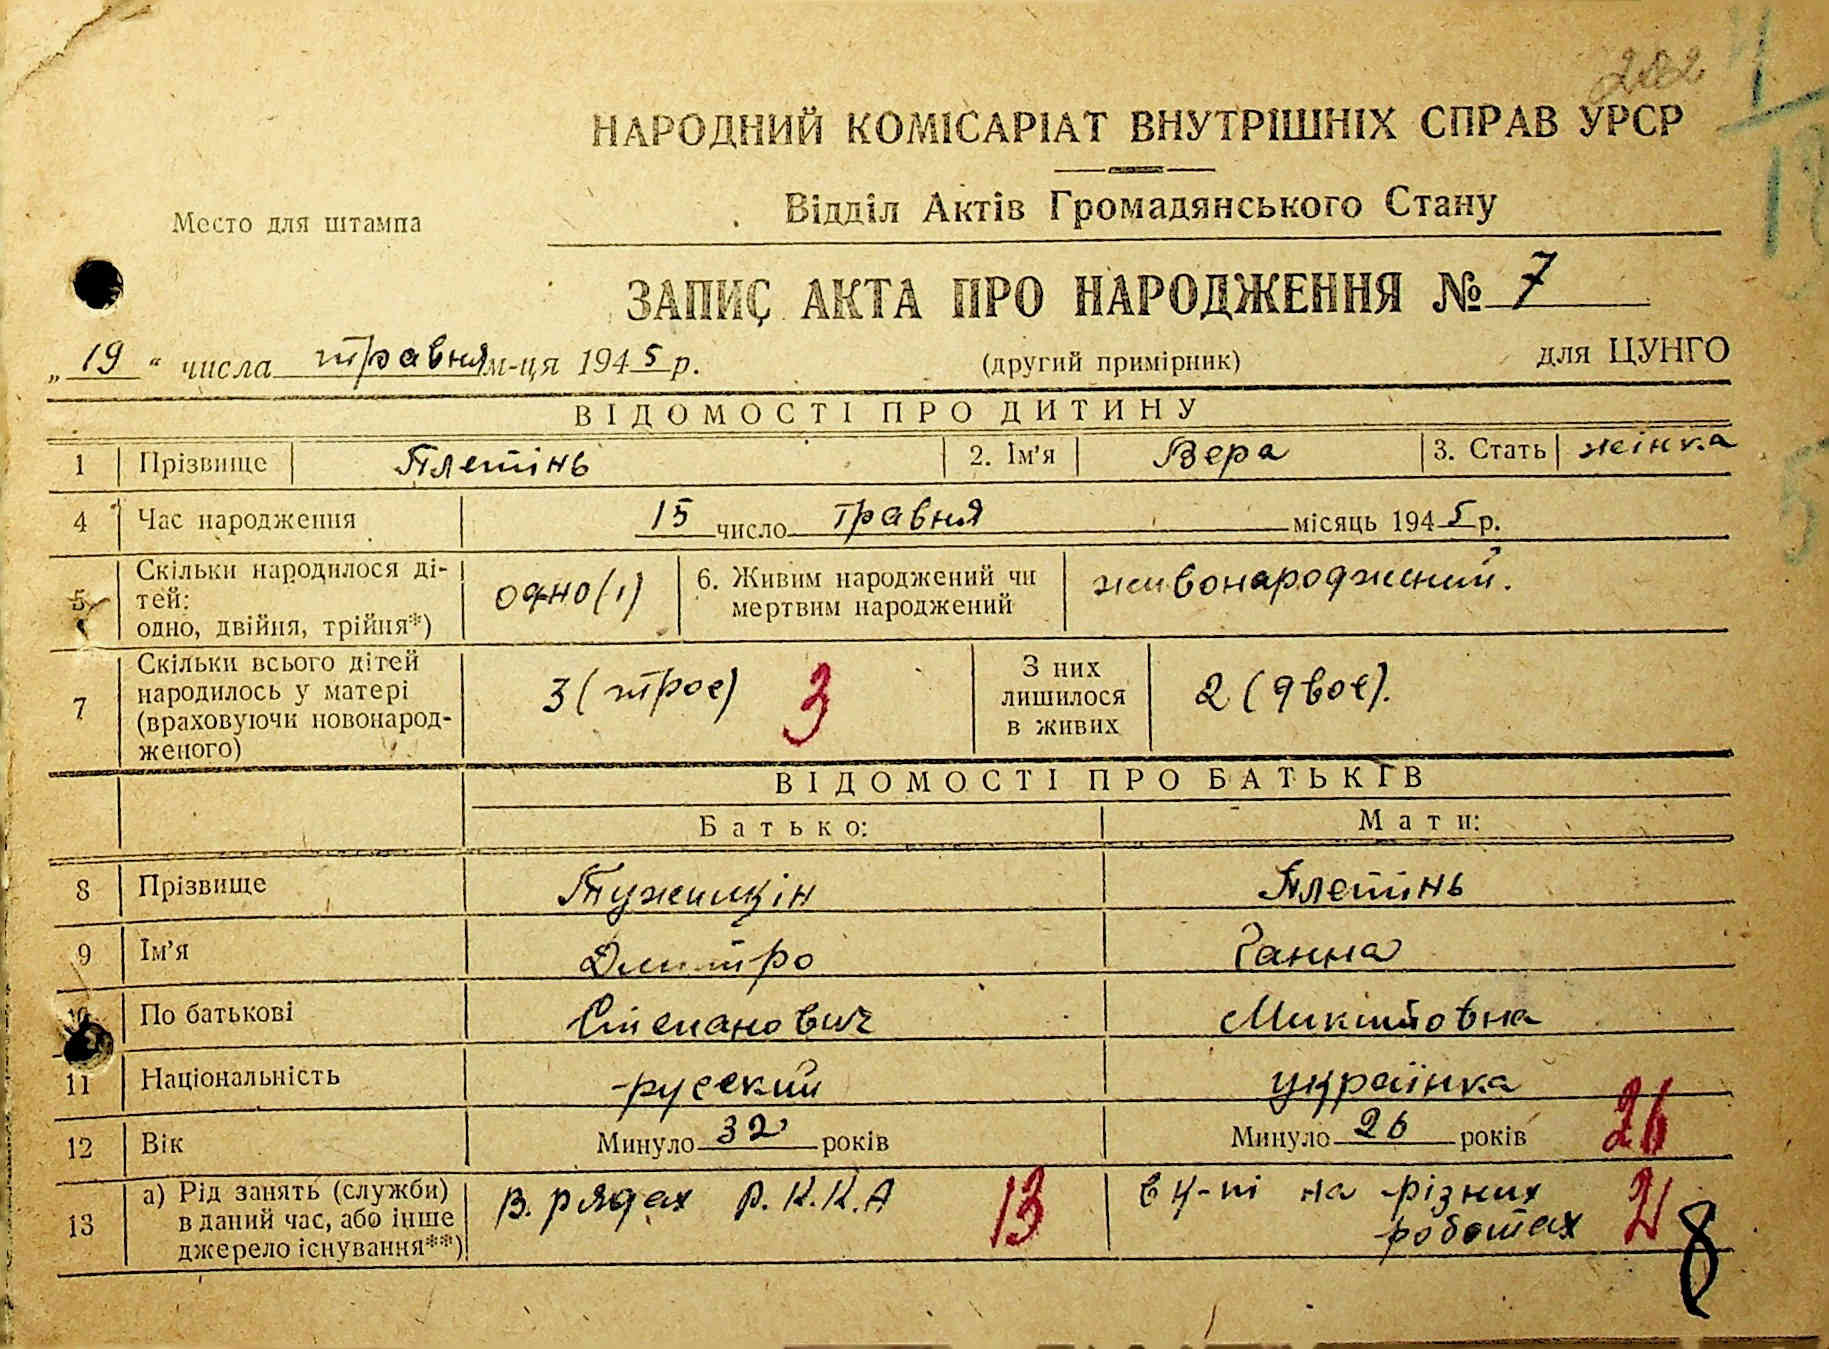 202
4
НАРОДНИЙ КОМІСАРІАТ ВНУТРІШНІХ СПРАВ УРСР
Відділ Актів Громадянського Стану
Место для штампа
ЗАПИС АКТА ПРО НАРОДЖЕННЯ № 7
„19“ числа травня м-ця 1945 р. (другий примірник) для ЦУНГО
ВІДОМОСТІ ПРО ДИТИНУ
1 Прізвище Плетінь 2. Ім'я Вера 3. Стать жінка
4 Час народження 15 число травня місяць 1945 р.
5 Скільки народилося ді-
тей:
одно, двійня, трійня*)
одно (1)
6. Живим народжений чи
мертвим народжений
живонароджений.
7 Скільки всього дітей
народилось у матері
(враховуючи новонарод-
женого)
3 (троє) 3
З них
лишилося
в живих
2 (двоє).
ВІДОМОСТІ ПРО БАТЬКІВ
Батько: Мати:
8 Прізвище Плетінь
9 Ім'я Дмитро Ганна
10 По батькові Степанович Микитовна
11 Національність русский українка
12 Вік Минуло 32 років Минуло 26 років 26
13 а) Рід занять (служби)
в даний час, або інше
джерело існування**)
В. рядах Р.К.К.А 13
на різних
роботах 21
8